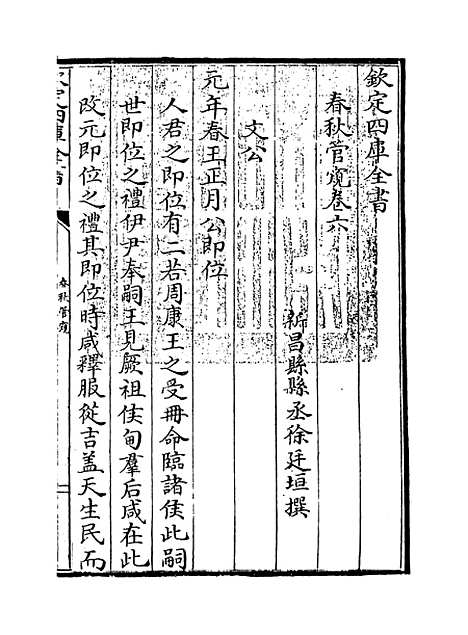 欽定四庫全書
春秋管窺卷六
新昌縣縣丞徐廷垣撰
文公
元年春王正月公即位
人君之即位有二若周康王之受冊命臨諸侯此嗣
世即位之禮伊尹奉嗣王見厥祖侯甸羣后咸在此
改元即位之禮其即位時咸釋服從吉蓋天生民而
欽定四庫全書
春秋管窺